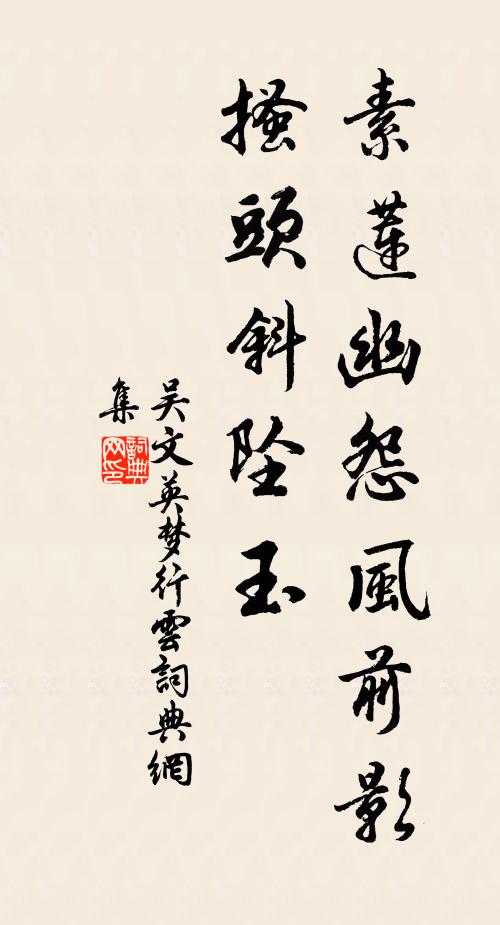 素蓮幽怨風前影
搔頭斜墜玉
吴文英梦行雲詞典網
集
詞典
网印